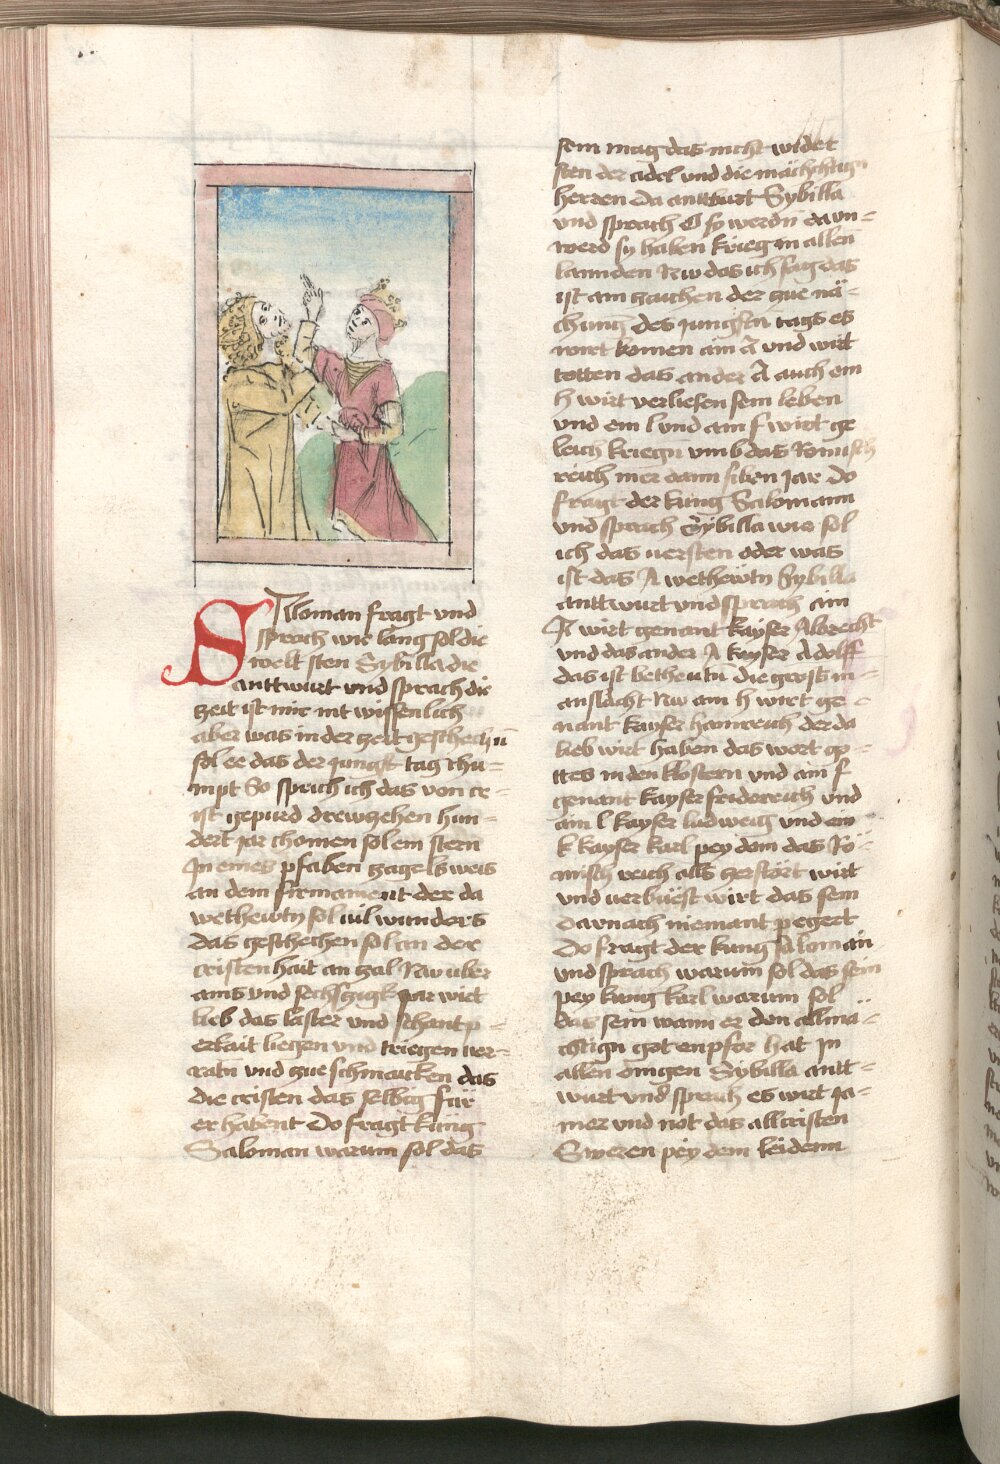 Salloman fragt und
sprach wie lang sol die
welt sten Sybilla die
anttwurt und sprach die
zeit ist mir nit wissenlich
aber was in der zeit geschech n̄
sol ee das der jungst tag thu=
mpt So sprich ich das von cr=
ist gepurd drewzehen hun=
dert jar chomen sol ein stern
In eines pfaben zagels weis
an dem firmament der da
wethewtn sol uil wunders
das geschechen sol an der
cristenhait an zal Nw uber
ains und sechszigk Jar wirt
lieb das laster und schantp=
erkait liegen und triegen ver=
ratn und zue schmaichen das
die cristen das selbig für
er habent Do fragt küng
Saloman warum sol das
sein mag das nicht widet
sten der adel und die mächchtign
herren Da anttburt Sybilla
und sprach O sy werdn da un=
werd sy haben krieg in allen
lannden Nw das ich sag das
ist am zaichen der zue nä=
chung des jungstn tags es
wirt komen ain A und wirt
totten das ander A auch ein
h wirt verliesen sein leben
und ein l und ain f wirt ge
leich kriegn umb das Römisch
reich mer dann siben jar Do
fragt der küng Salomann
und sprach Sybilla wie sol
ich das uersten oder was
ist das A wethewtn Sybilla
anttwurt und sprach ain
A wirt genant kayser Albrecht
und das ander A kayser Adolff
das ist betheutn die groß m=
anslacht Nw ain h wirt ge=
nant kayser hainreich der da
lieb wirt haben das wort go=
ttes in den klostern und ain f
genant kayser fridereich und
ain l kayser ludweig und ein
k kayser karl pey dem das Rö=
misch reich alls zerstört wirt
und uerbüest wirt das sein
darnach niemant pegert
Do fragt der küng Saloman
und sprach warum sol das sein
pey küng karl warum sol
das sein wann er den allmä=
chtign got enpfor hat In
allen dingen Sybilla antt=
wurt und sprach es wirt ja=
mer und not das all cristen
Sweren pey dem leidenn